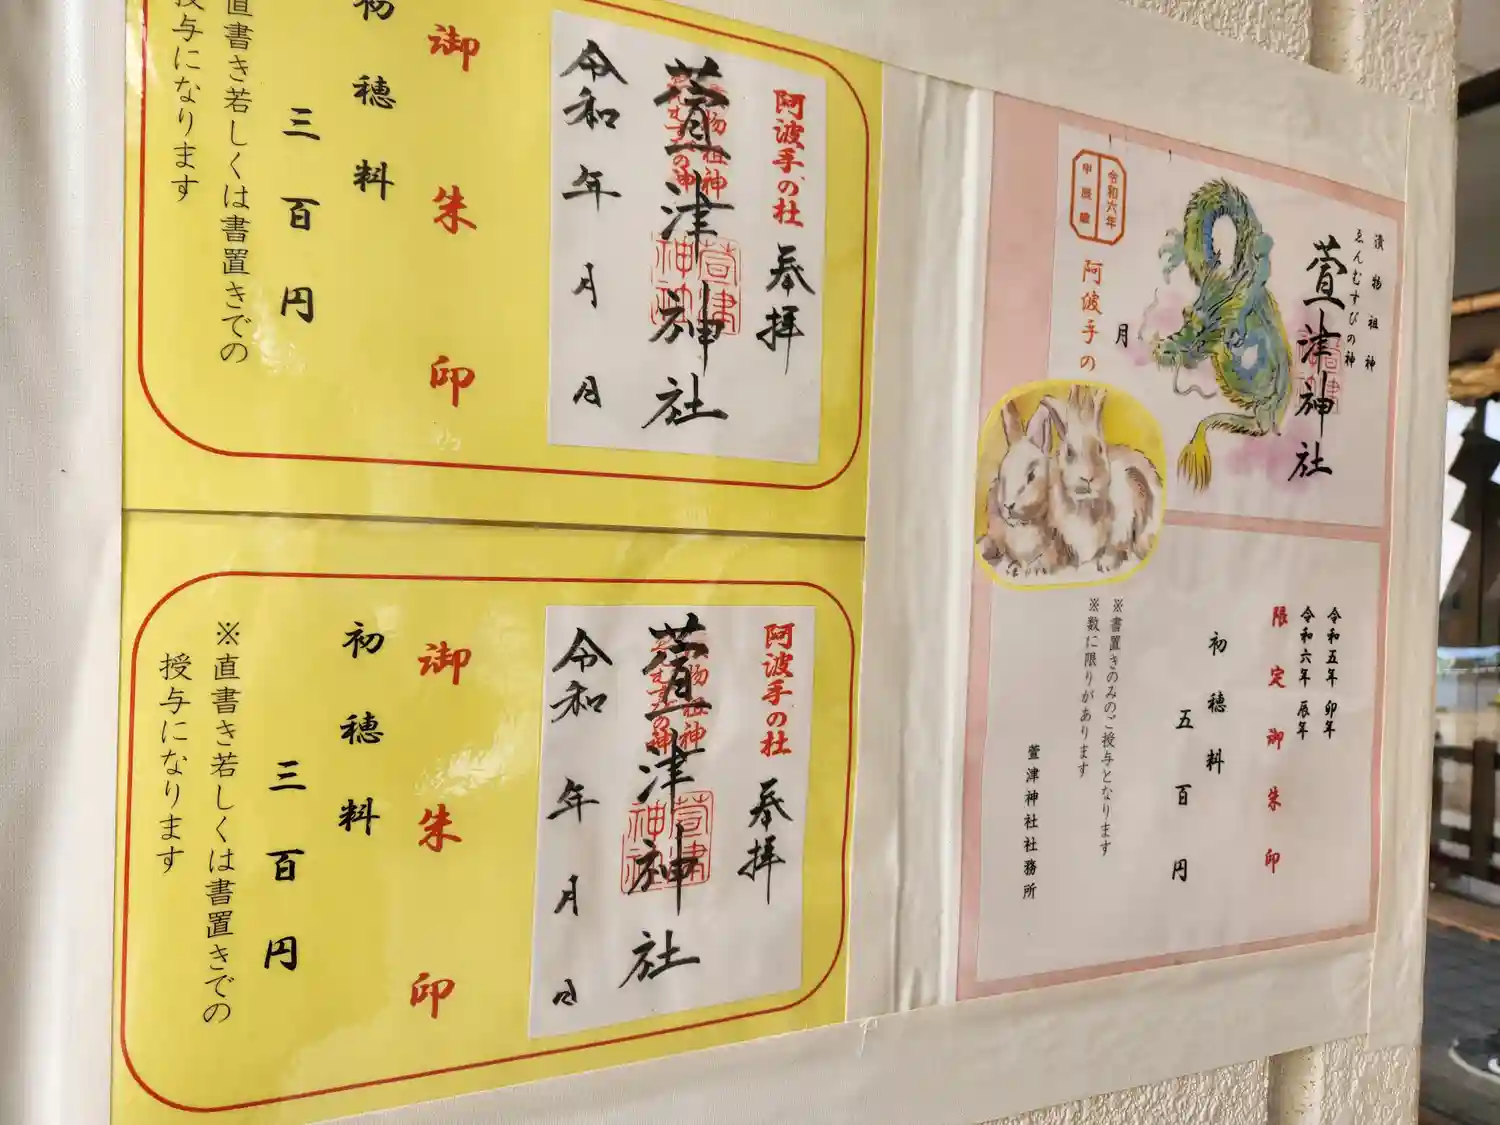 御朱印
初穂料
三百円
直書き若しくは書置きでの
授与になります
阿波手の杜
奉拝
萱津神社
令和 年 月 日
御朱印
初穂料
三百円
※直書き若しくは書置きでの
授与になります
阿波手の杜
奉拝
萱津神社
令和 年 月 日
漬物祖神
ゑんむすびの神
萱津神社
令和六年
甲辰龍
阿波手の
月
令和五年 卯年
令和六年 辰年
限定御朱印
初穂料
五百円
※書置きのみのご授与となります
※数に限りがあります
萱津神社社務所